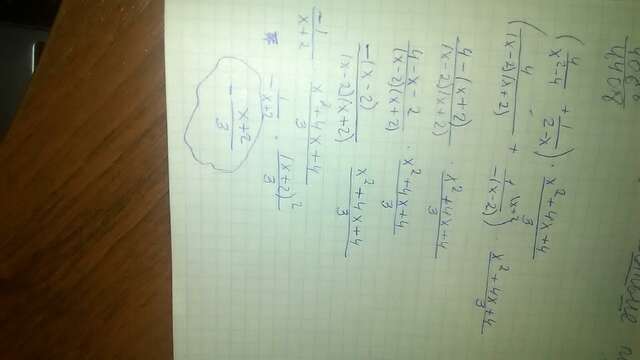 4408
(4/(x²-4) + 1/(2-x)) · (x²+4x+4)/3
(4/((x-2)(x+2)) + 1/(-(x-2))) · (x²+4x+4)/3
(4-(x+2))/((x-2)(x+2)) · (x²+4x+4)/3
(4-x-2)/((x-2)(x+2)) · (x²+4x+4)/3
(-(x-2))/((x-2)(x+2)) · (x²+4x+4)/3
-1/(x+2) · (x²+4x+4)/3
-1/(x+2) · (x+2)²/3
-(x+2)/3